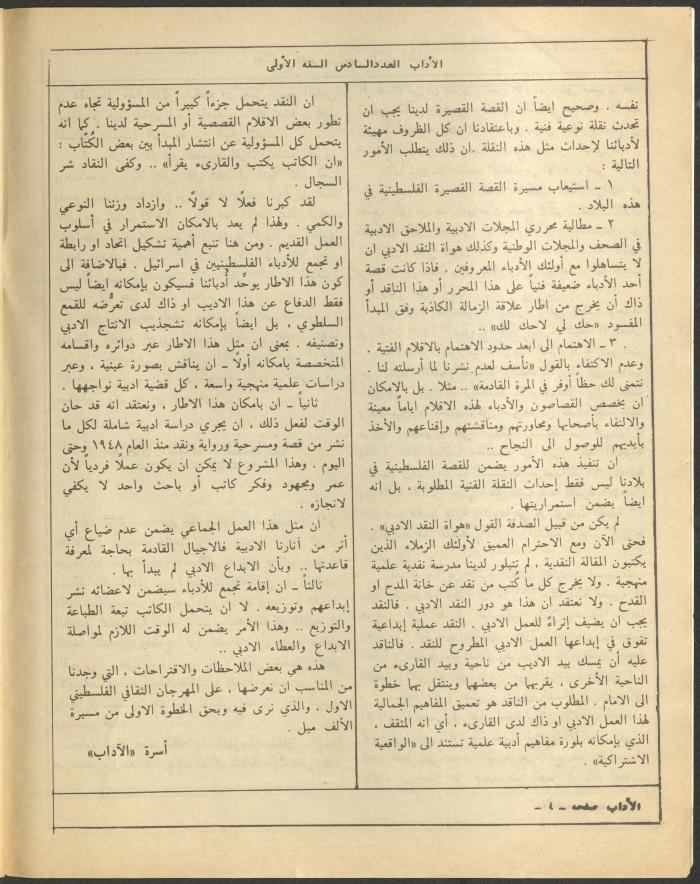 الآداب العدد السادس السنه الأولى
نفسه . وصحيح ايضاً ان القصة القصيرة لدينا يجب ان
تحدث نقلة نوعية فنية . وباعتقادنا ان كل الظروف مهيئة
لأدبائنا لإحداث مثل هذه النقلة .ان ذلك يتطلب الأمور
التالية :
١ ـ استيعاب مسيرة القصة القصيرة الفلسطينية في
هذه البلاد .
٢ ـ مطالبة محرري المجلات الادبية والملاحق الادبية
في الصحف والمجلات الوطنية وكذلك هواة النقد الادبي ان
لا يتساهلوا مع أولئك الأدباء المعروفين . فاذا كانت قصة
أحد الأدباء ضعيفة فنياً على هذا المحرر او هذا الناقد أو
ذاك أن يخرج من اطار علاقة الزمالة الكاذبة وفق المبدأ
المفسود «حك لي لاحك لك» ..
٣ ـ الاهتمام الى ابعد حدود الاهتمام بالاقلام الفتية .
وعدم الاكتفاء بالقول «نأسف لعدم نشرنا لما أرسلته لنا .
نتمنى لك حظاً أوفر في المرة القادمة» .. مثلا . بل بالامكان
ان يخصص القصاصون والأدباء لهذه الاقلام اياماً معينة
والالتقاء بأصحابها ومحاورتهم ومناقشتهم وإقناعهم والأخذ
بأيديهم للوصول الى النجاح ..
ان تنفيذ هذه الأمور يضمن للقصة الفلسطينية في
بلادنا ليس فقط إحداث النقلة الفنية المطلوبة ، بل انه
ايضاً يضمن استمراريتها .
لم يكن من قبيل الصدفة القول «هواة النقد الادبي» .
فحتى الآن ومع الاحترام العميق لأولئك الزملاء الذين
يكتبون المقالة النقدية ، لم تتبلور لدينا مدرسة نقدية علمية
منهجية . ولا يخرج كل ما كُتب من نقد عن خانة المدح او
القدح . ولا نعتقد ان هذا هو دور النقد الادبي . فالنقد
يجب ان يضيف إثراءً للعمل الادبي . النقد عملية إبداعية
تفوق في إبداعها العمل الادبي المطروح للنقد . فالناقد
عليه أن يمسك بيد الاديب من ناحية وبيد القارىء من
الناحية الأخرى ، يقربهما من بعضهما وينتقل بهما خطوة
الى الامام . المطلوب من الناقد هو تعميق المفاهيم الجمالية
لهذا العمل الادبي او ذاك لدى القارىء ، أي انه المثقف ،
الذي بإمكانه بلورة مفاهيم أدبية علمية تستند الى «الواقعية
الاشتراكية» .
ان النقد يتحمل جزءاً كبيراً من المسؤولية تجاه عدم
تطور بعض الاقلام القصصية أو المسرحية لدينا . كما انه
يتحمل كل المسؤولية عن انتشار المبدأ بين بعض الكُتّاب :
«ان الكاتب يكتب والقارىء يقرأ» .. وكفى النقاد شر
السجال .
لقد كبرنا فعلًا لا قولًا .. وازداد وزننا النوعي
والكمي . ولهذا لم يعد بالامكان الاستمرار في أسلوب
العمل القديم . ومن هنا تنبع أهمية تشكيل اتحاد او رابطة
او تجمع للأدباء الفلسطينيين في اسرائيل . فبالاضافة الى
كون هذا الاطار يوحِّد أدبائنا فسيكون بإمكانه ايضاً ليس
فقط الدفاع عن هذا الاديب او ذاك لدى تعرُّضه للقمع
السلطوي ، بل ايضاً بإمكانه تشجذيب الانتاج الادبي
وتصنيفه . بمعنى ان مثل هذا الاطار عبر دوائره واقسامه
المتخصصة بامكانه أولًا ـ ان يناقش بصورة عينية ، وعبر
دراسات علمية منهجية واسعة ، كل قضية ادبية نواجهها .
ثانياً ـ ان بامكان هذا الاطار ، ونعتقد انه قد حان
الوقت لفعل ذلك ، ان يجري دراسة ادبية شاملة لكل ما
نشر من قصة ومسرحية ورواية ونقد منذ العام ١٩٤٨ وحتى
اليوم . وهذا المشروع لا يمكن ان يكون عملًا فردياً لأن
عمر ومجهود وفكر كاتب أو باحث واحد لا يكفي
لانجازه .
ان مثل هذا العمل الجماعي يضمن عدم ضياع أي
أثر من آثارنا الادبية فالاجيال القادمة بحاجة لمعرفة
قاعدتها .. وبأن الابداع الادبي لم يبدأ بها .
ثالثاً ـ ان إقامة تجمع للأدباء سيضمن لاعضائه نشر
إبداعهم وتوزيعه . لا ان يتحمل الكاتب تبعة الطباعة
والتوزيع .. وهذا الأمر يضمن له الوقت اللازم لمواصلة
الابداع والعطاء الادبي ..
هذه هي بعض الملاحظات والاقتراحات ، التي وجدنا
من المناسب ان نعرضها ، على المهرجان الثقافي الفلسطيني
الاول ، والذي نرى فيه وبحق الخطوة الاولى من مسيرة
الألف ميل .
أسرة «الآداب»
الأداب صفحه ـ ٤ ـ